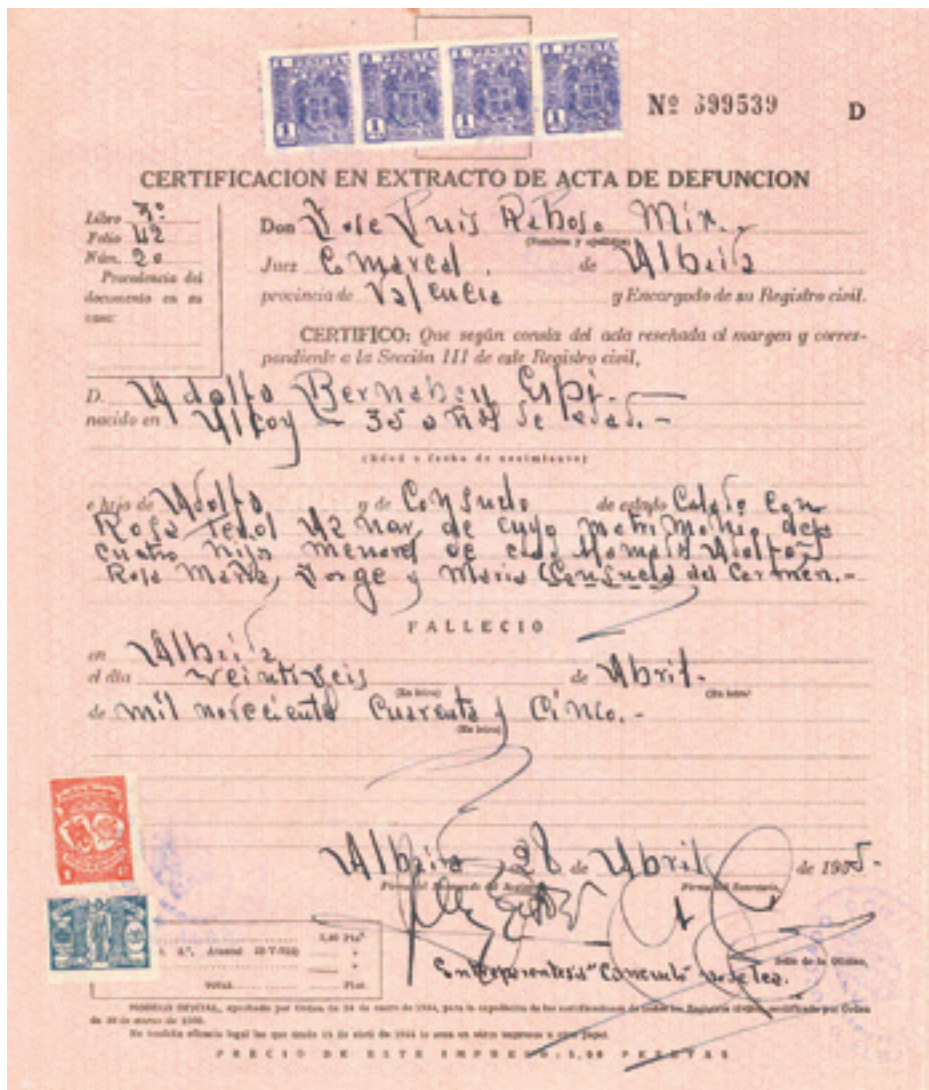 1 PESETA 1 PESETA 1 PESETA 1 PESETA
1 1 1 1
Nº 399539 D
CERTIFICACION EN EXTRACTO DE ACTA DE DEFUNCION
Libro 7º
Folio 42
Núm. 20
Procedencia del
documento en su
caso:
Don Jose Luis Reboso
(Nombres y apellidos)
Juez Comarcal. de Albaida
provincia de Valencia y Encargado de su Registro civil.
CERTIFICO: Que según consta del acta reseñada al margen y corres-
pondiente a la Sección III de este Registro civil,
D. Adolfo Bernabeu Espí.-
nacido en Alcoy - 35 años de edad.-
(Edad o fecha de nacimiento)
e hijo de Adolfo y de Consuelo de estado Casado con
Rosa Terol Aznar, de cuyo matrimonio deja
cuatro hijos menores de edad llamados Adolfo,
Rosa Maria, Jorge y Maria (Consuelo) del Carmen.-
FALLECIO
en Albaida
el día veintiseis de Abril.-
(En letra) (En letra)
de mil novecientos cuarenta y cinco.-
(En letra)
Albaida 28 de Abril de 1955-
Firma del Encargado del Registro, Firma del Secretario,
Sello de la Oficina,
Entreparentesis "Consuelo" no se lea.
TOTAL Ptas.
MODELO OFICIAL, aprobado por Orden de 24 de enero de 1944, para la expedición de las certificaciones de todos los Registros civiles, rectificado por Orden
de
No tendrán eficacia legal las que desde 15 de abril de 1944 lo sean en otros impresos u otro papel.
PRECIO DE ESTE IMPRESO: 5,00 PESETAS